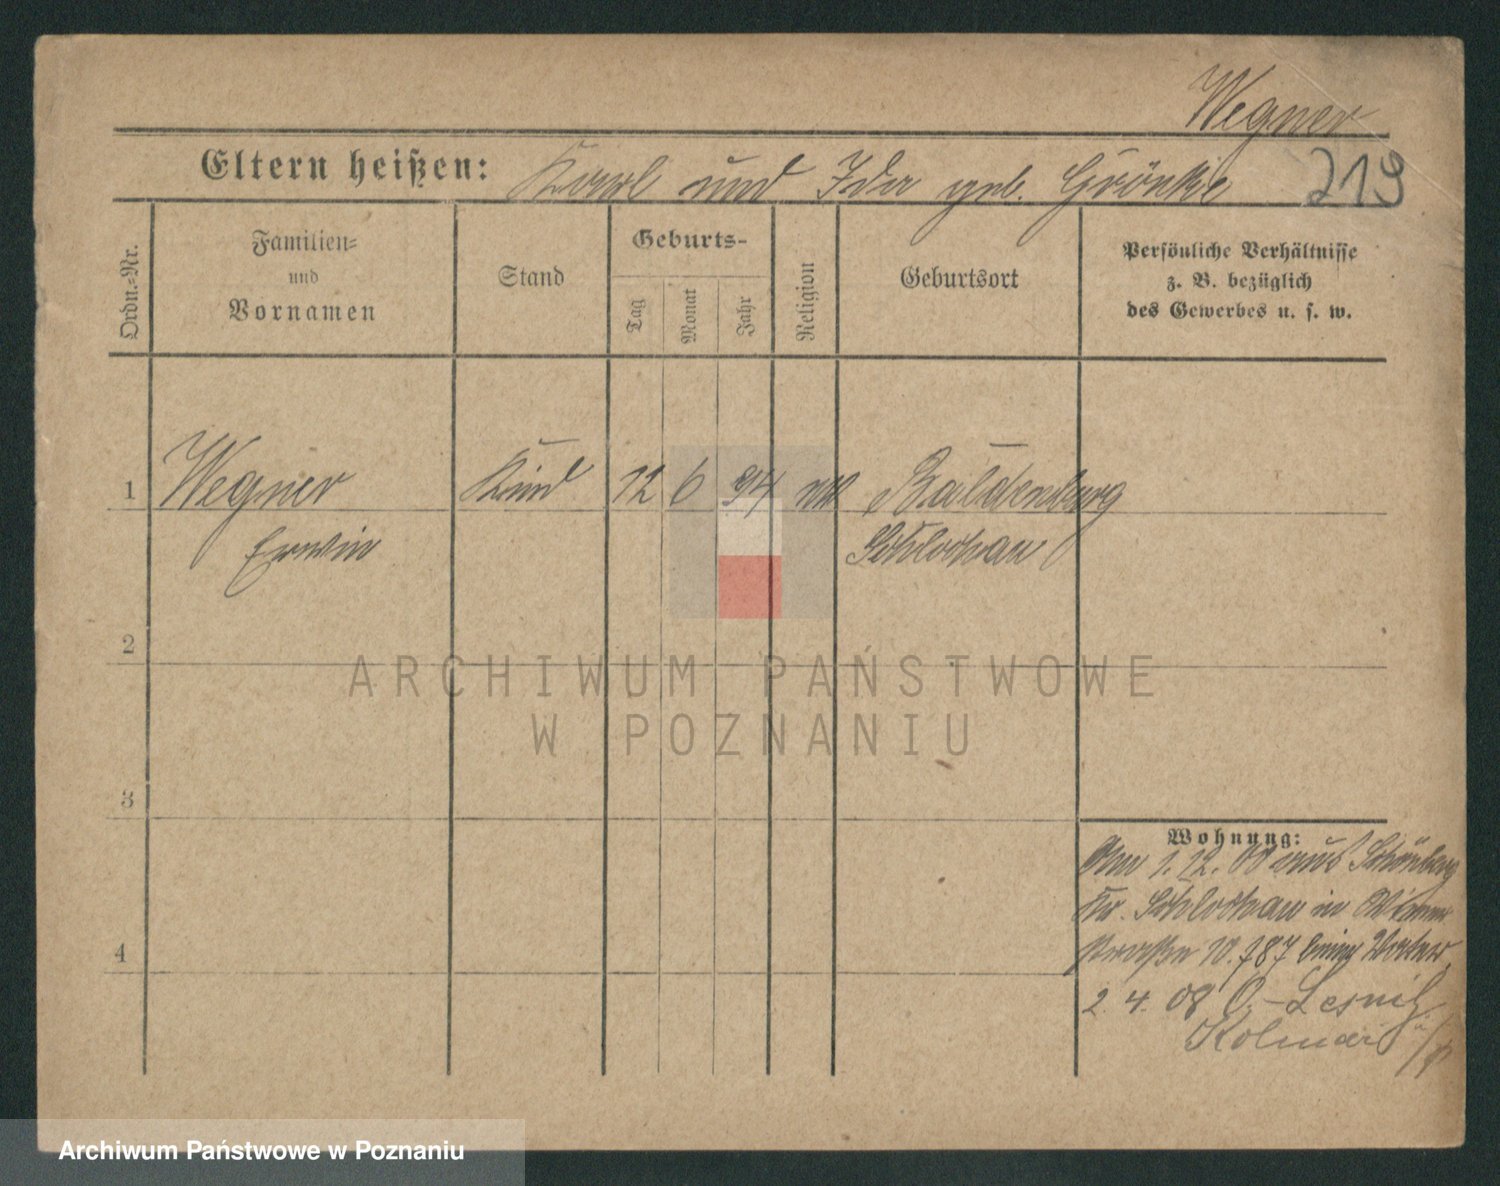 Wegner
Eltern heißen: Karl und Ida geb. Grönke 219
Ordn.-Nr. Familien- und Vornamen Stand Geburts- Tag Monat Jahr Religion Geburtsort Persönliche Verhältnisse z. B. bezüglich des Gewerbes u. s. w.
1 Wegner Kind 12 6 94 Baldenburg
Erwin Schlochau
2
ARCHIWUM PAŃSTWOWE
W POZNANIU
3
Wohnung:
1. 12. aus Schönberg
Kr. Schlochau in
straße 10.
4
2. 4. 08 O.-Lesnitz
Kolmar i/P
Archiwum Państwowe w Poznaniu